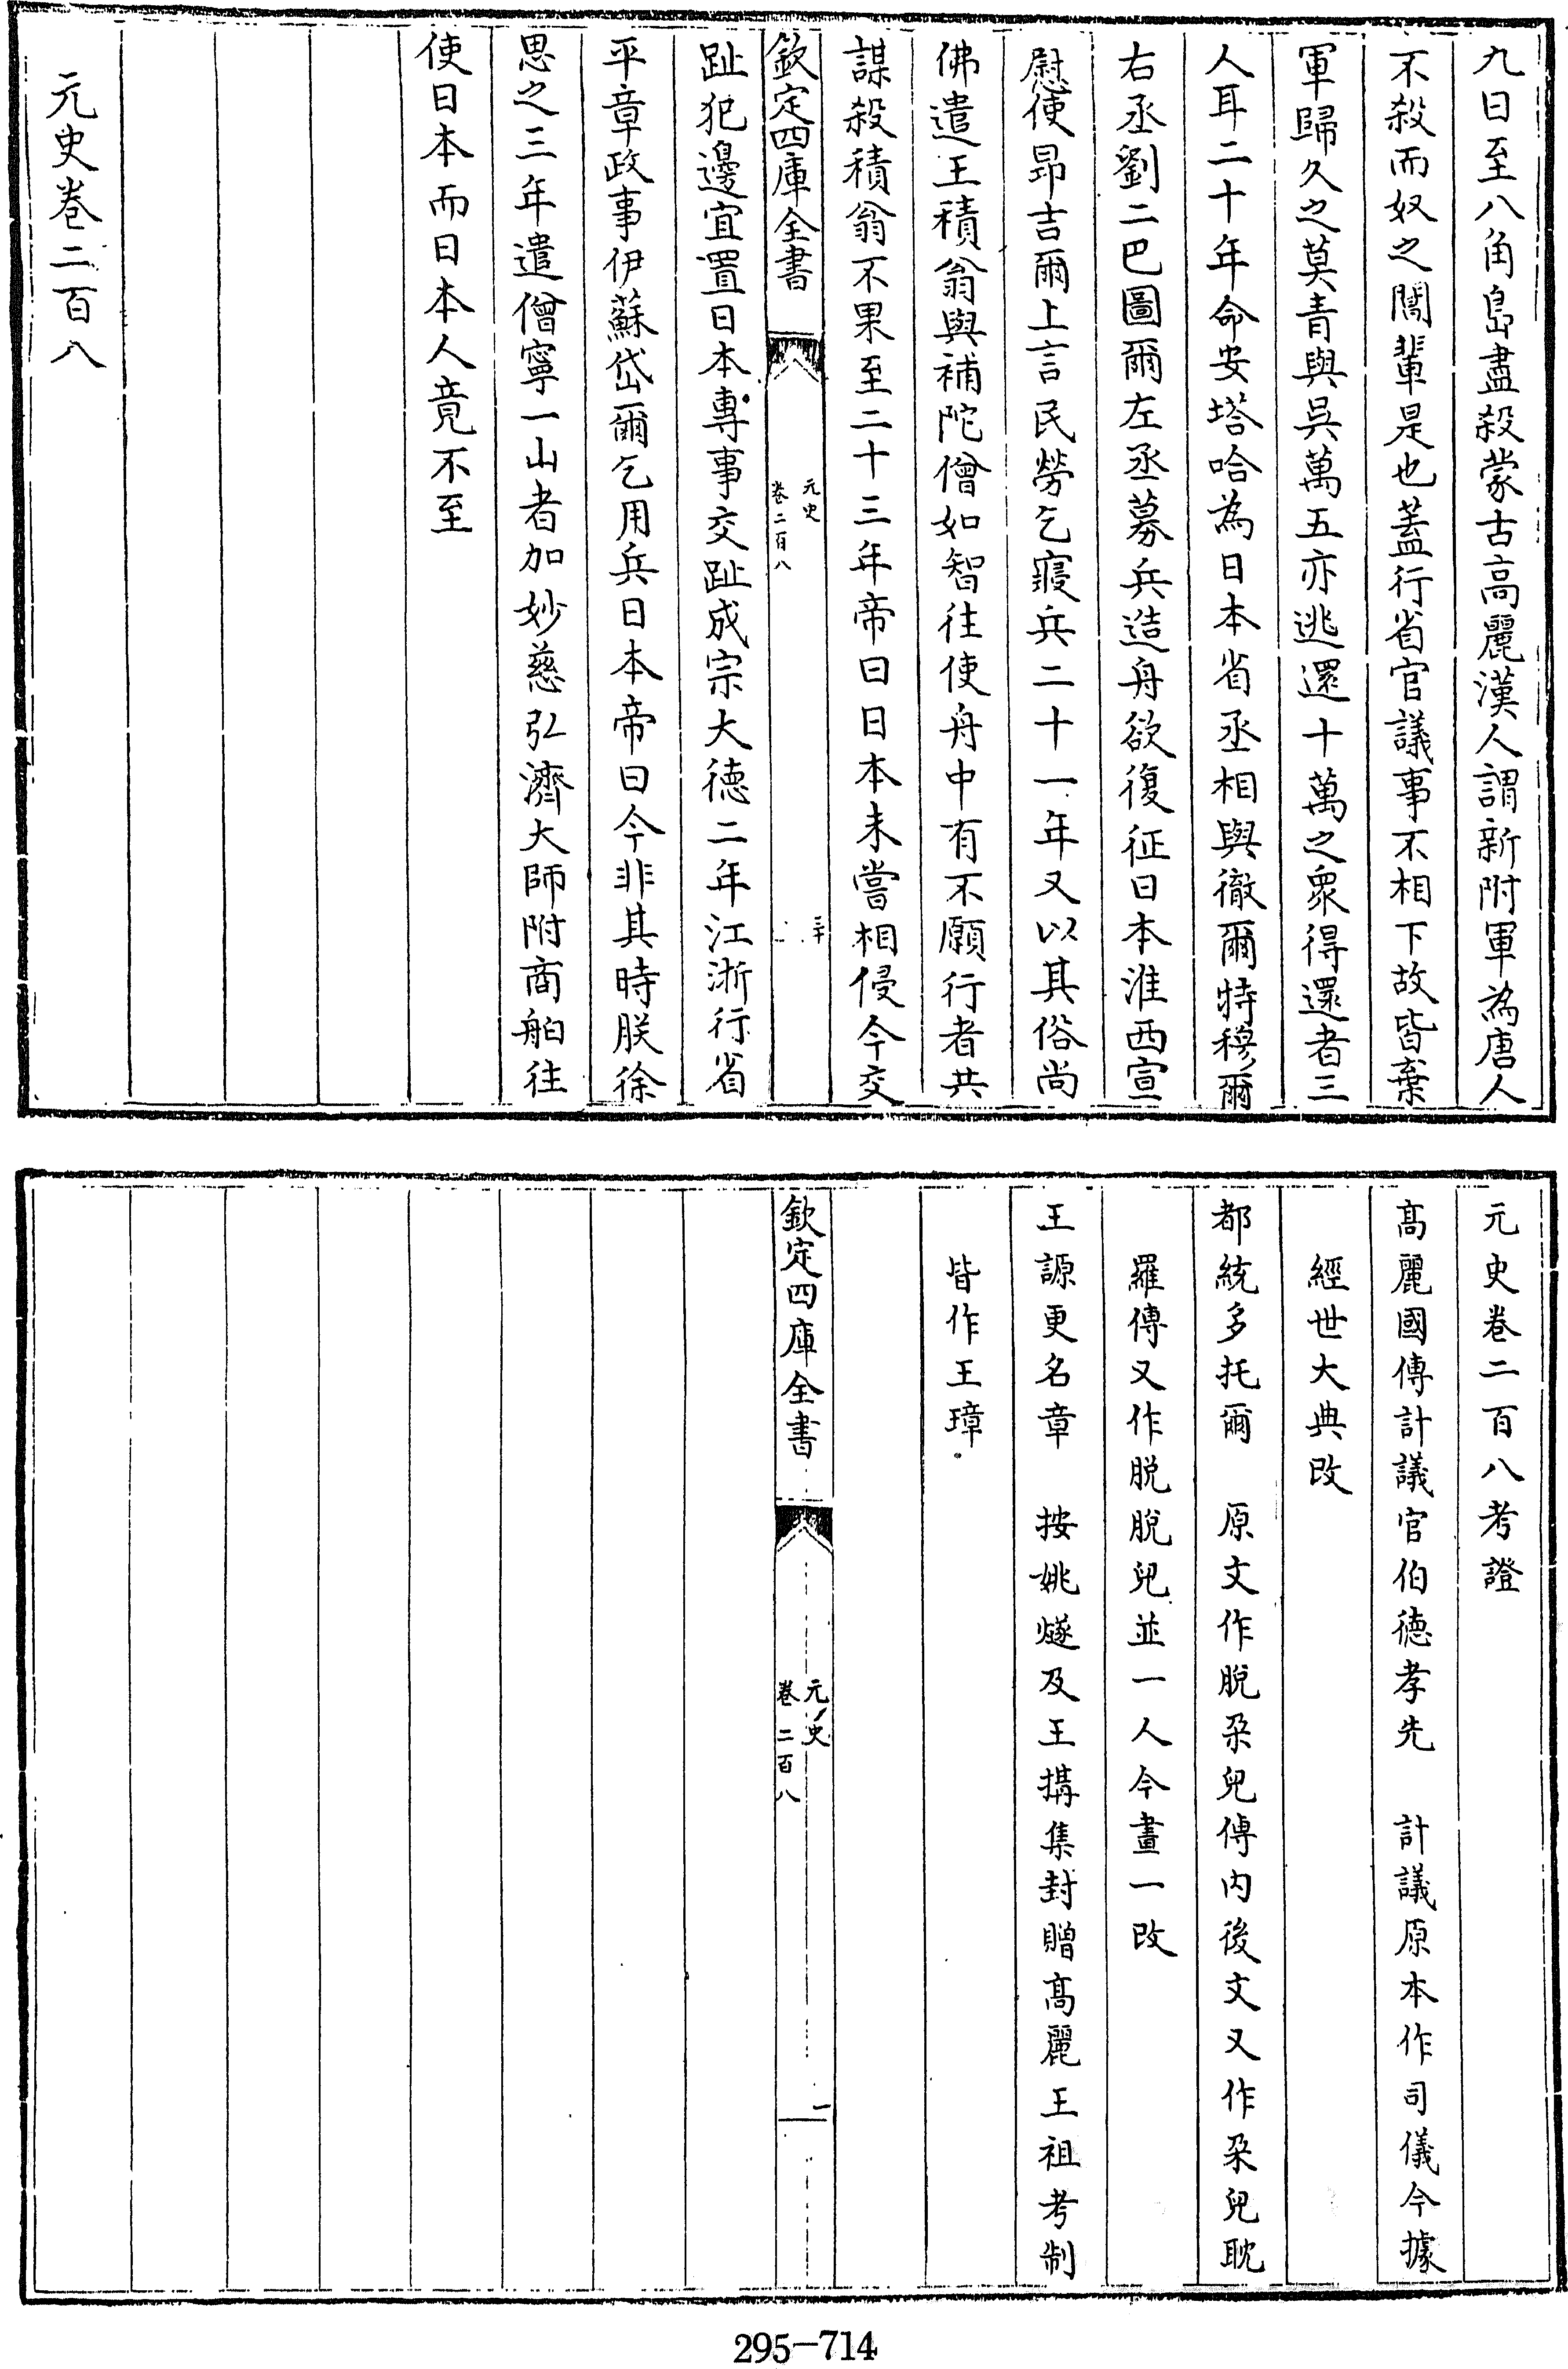 九日至八角島盡殺蒙古高麗漢人謂新附軍為唐人
不殺而奴之閶輩是也蓋行省官議事不相下故皆棄
軍歸久之莫青與吳萬五亦逃還十萬之衆得還者三
人耳二十年命安塔哈為日本省丞相與徹爾特穆爾
右丞劉二巴圖爾左丞募兵造舟欲復征日本淮西宣
慰使昂吉爾上言民勞乞寢兵二十一年又以其俗尚
佛遣王積翁與補陀僧如智往使舟中有不願行者共
謀殺積翁不果至二十三年帝曰日本未嘗相侵今交
欽定四庫全書
元史
卷二百八
趾犯邊宜置日本專事交趾成宗大德二年江浙行省
平章政事伊蘇岱爾乞用兵日本帝曰今非其時朕徐
思之三年遣僧寧一山者加妙慈弘濟大師附商舶往
使日本而日本人竟不至
元史卷二百八
元史卷二百八考證
高麗國傳計議官伯德孝先 計議原本作司儀今據
經世大典改
都統多托爾 原文作脫朶兒傳内後文又作朶兒耽
羅傳又作脫脫兒並一人今畫一改
王謜更名章 按姚燧及王搆集封贈高麗王祖考制
皆作王璋
欽定四庫全書
元史
卷二百八
一
295-714